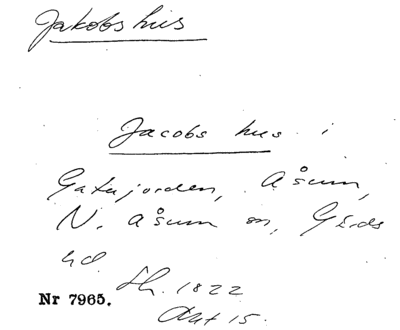 Jakobs hus
Jacobs hus i
Gatujorden, Åsum,
N. Åsum sn, Gärds
hd.
Lh. 1822
Akt 15.
Nr 7965.